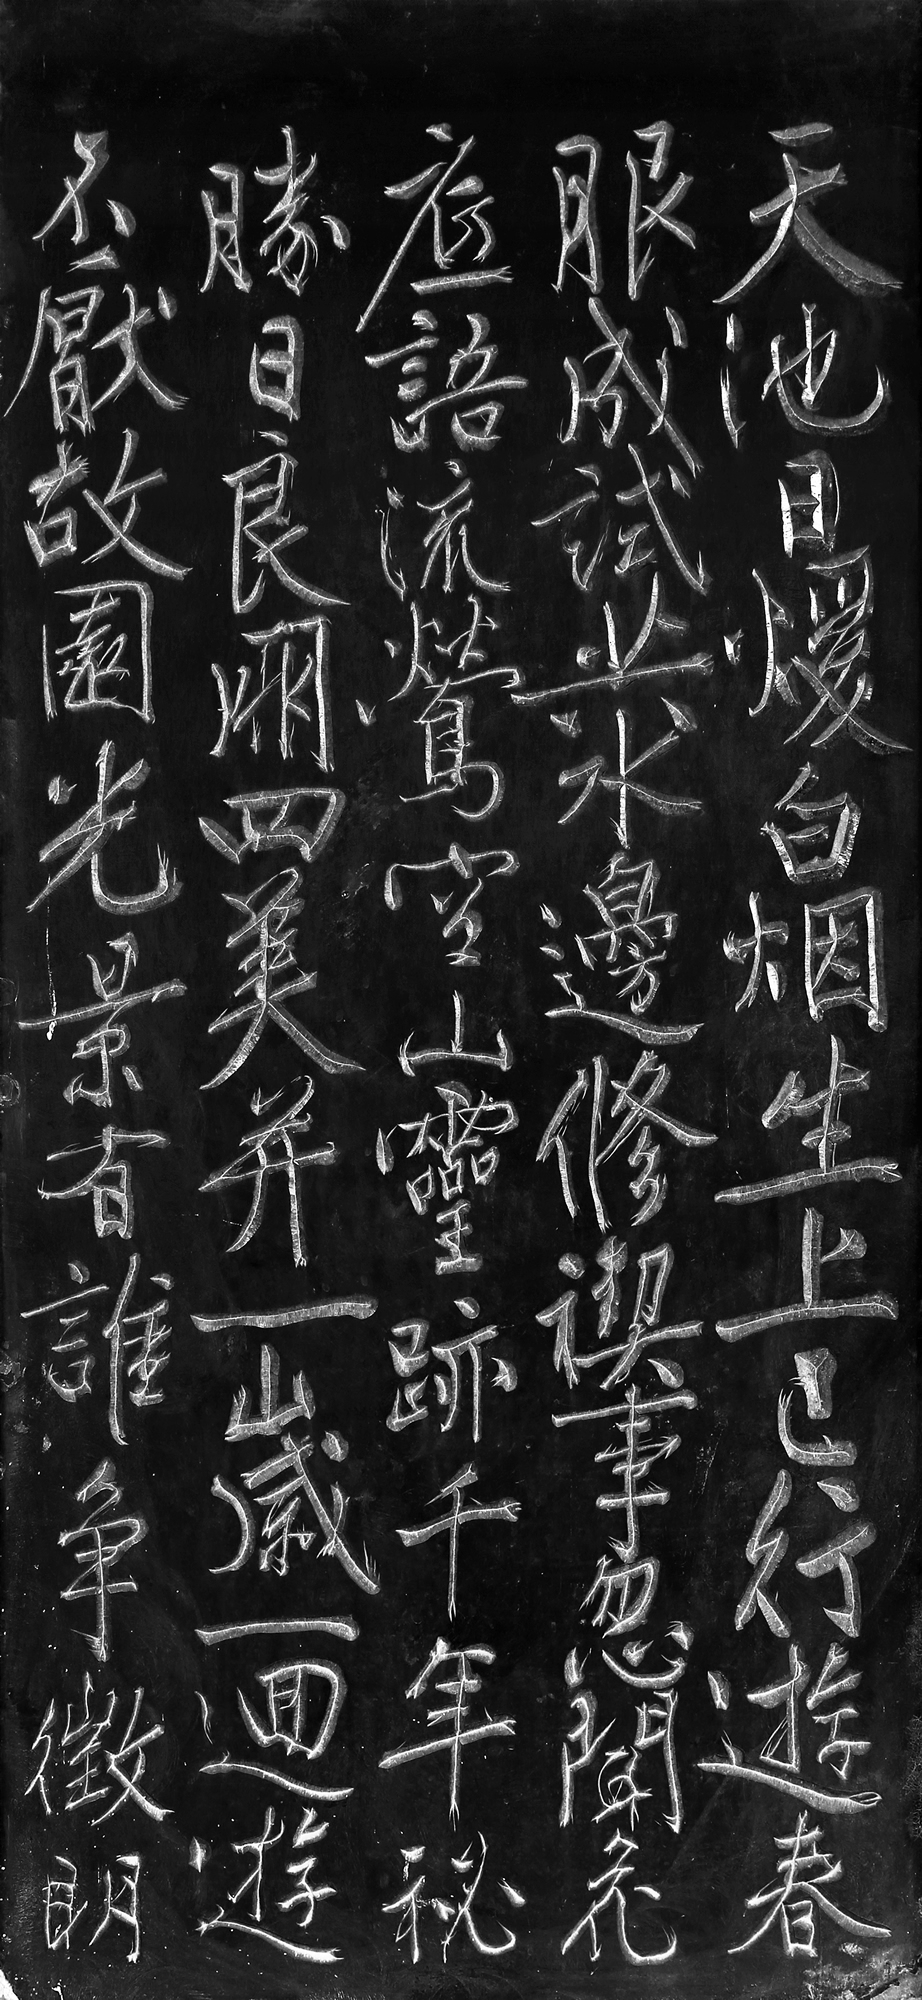 天池日煖白烟生上巳行遊春
服成試共水邊修禊事忽聞花
底語流鶯空山靈跡千年秘
勝日良朋四美并一嵗一迴遊
不厭故園光景有誰争徵明